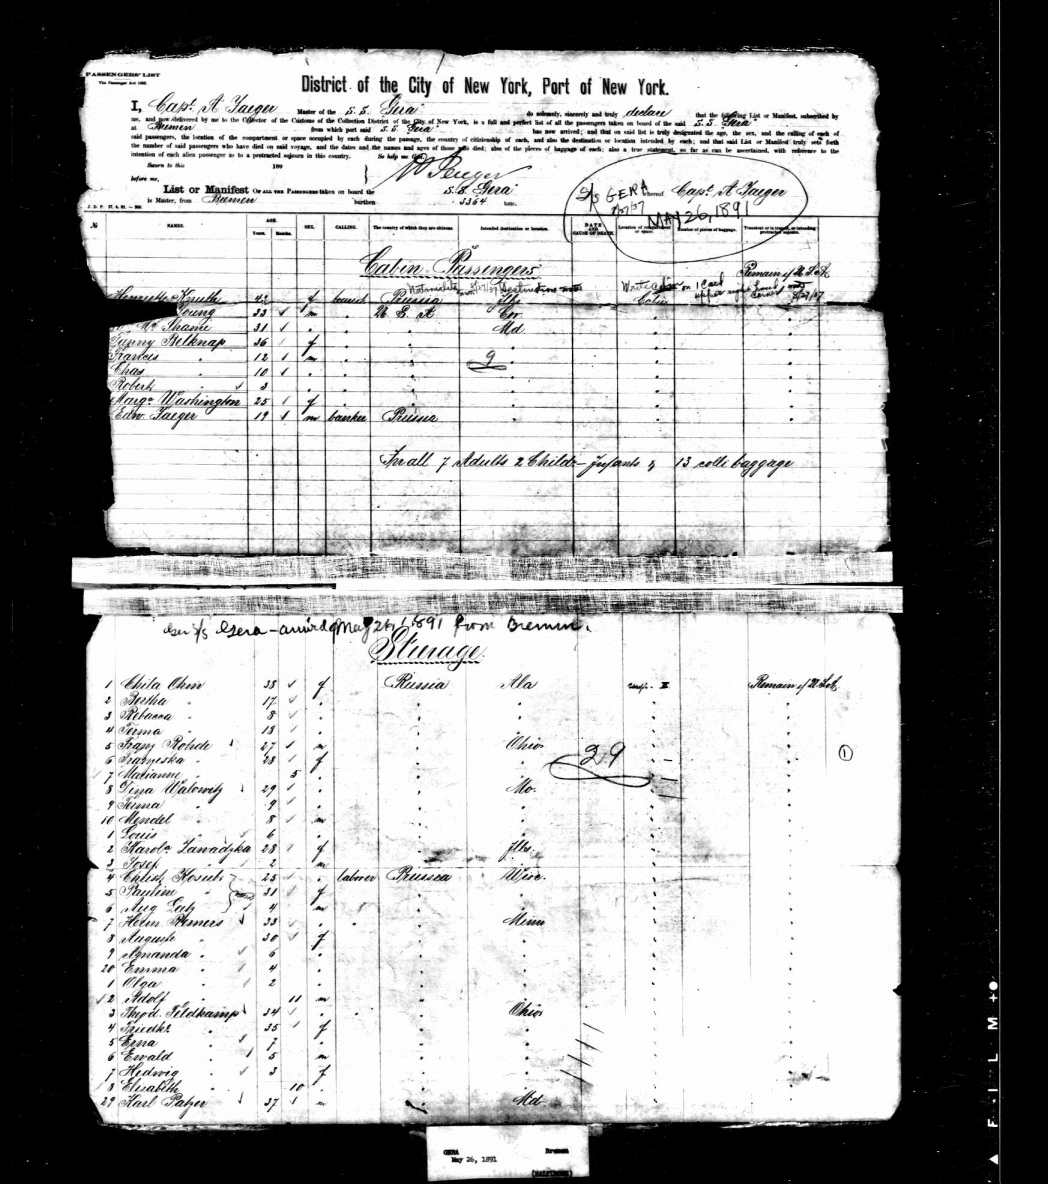 PASSENGERS' LIST
The Passenger Act 1882.
District of the City of New York, Port of New York.
I, Capt. A Jaeger Master of the S. S. "Gera" do solemnly, sincerely and truly declare that the following List or Manifest, subscribed by
me, and now delivered by me to the Collector of the Customs of the Collection District of the City of New York, is a full and perfect list of all the passengers taken on board of the said S. S. Gera
at Bremen from which port said S. S. "Gera" has now arrived; and that on said list is truly designated the age, the sex, and the calling of each of
said passengers, the location of the compartment or space occupied by each during the passage, the country of citizenship of each, and also the destination or location intended by each; and that said List or Manifest truly sets forth
the number of said passengers who have died on said voyage, and the dates and the names and ages of those who died; also of the pieces of baggage of each; also a true statement, so far as can be ascertained, with reference to the
intention of each alien passenger as to a protracted sojourn in this country. So help me God.
Sworn to this 189
before me, A Jaeger
List or Manifest OF ALL THE PASSENGERS taken on board the S. S. "Gera" whereof Capt. A Jaeger
is Master, from Bremen burthen 3364 tons.
S/S GERA
MAY 26, 1891
№ NAMES. AGE. Years. Months. SEX. CALLING. The country of which they are citizens. Intended destination or location. DATE AND CAUSE OF DEATH. Location of compartment or space. Number of pieces of baggage. Transient or in transit, or intending protracted sojourn.
Cabin-Passengers
Remain of U.S.A.
Henriette Knuth 42 f Russia Ills Cabin
Young 33 m U S A
Mc Shane 31 Md
Fanny Belknap 36 f
Francis 12 m
9
Chas 10
Robert 3
Margr. Washington 25 f
Edw. Jaeger 19 m banker Prussia
In all 7 Adults 2 Childr – Infants 13 colli baggage
S/S Gera - arrived May 26, 1891 from Bremen.
Steerage.
1 Chila Ohm 38 f Russia Ala Remain of U.S.A.
2 Bertha 17
3 Rebacca 8
4 Irma 13
5 Franz Rohde 27 m Ohio
29
1
6 Franziska 28 f
7 Marianne 5
8 Dina Walowitz 29 Mo.
9 Irma 9
10 Mendel 8 m
1 Louis 6
2 Karole Zawadzka 28 f Ills.
3 Josef 2 m
4 Christ. 25 laborer Prussia Wisc.
5 Pauline 31 f
6 Aug 4 m
7 Herm 33 Minn
8 Auguste 30 f
9 Amanda 6
20 Emma 4
1 Olga 2
2 Adolf 11 m
3 Theod. Feldkamp 34 Ohio
4 Friedke 35 f
5 Erna 7
6 Ewald 5 m
7 Hedwig 3 f
8 Elisabeth 10
29 Karl Patzer 37 m Md
GERA Bremen
May 26, 1891
FILM